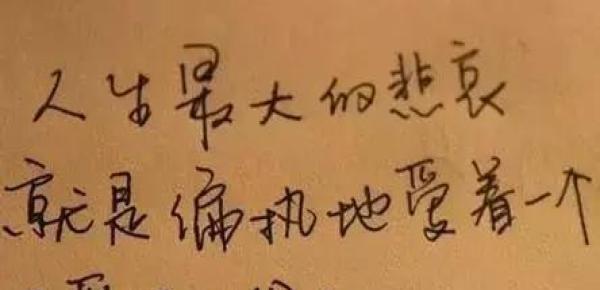 人生最大的悲哀
就是偏执地爱着一个